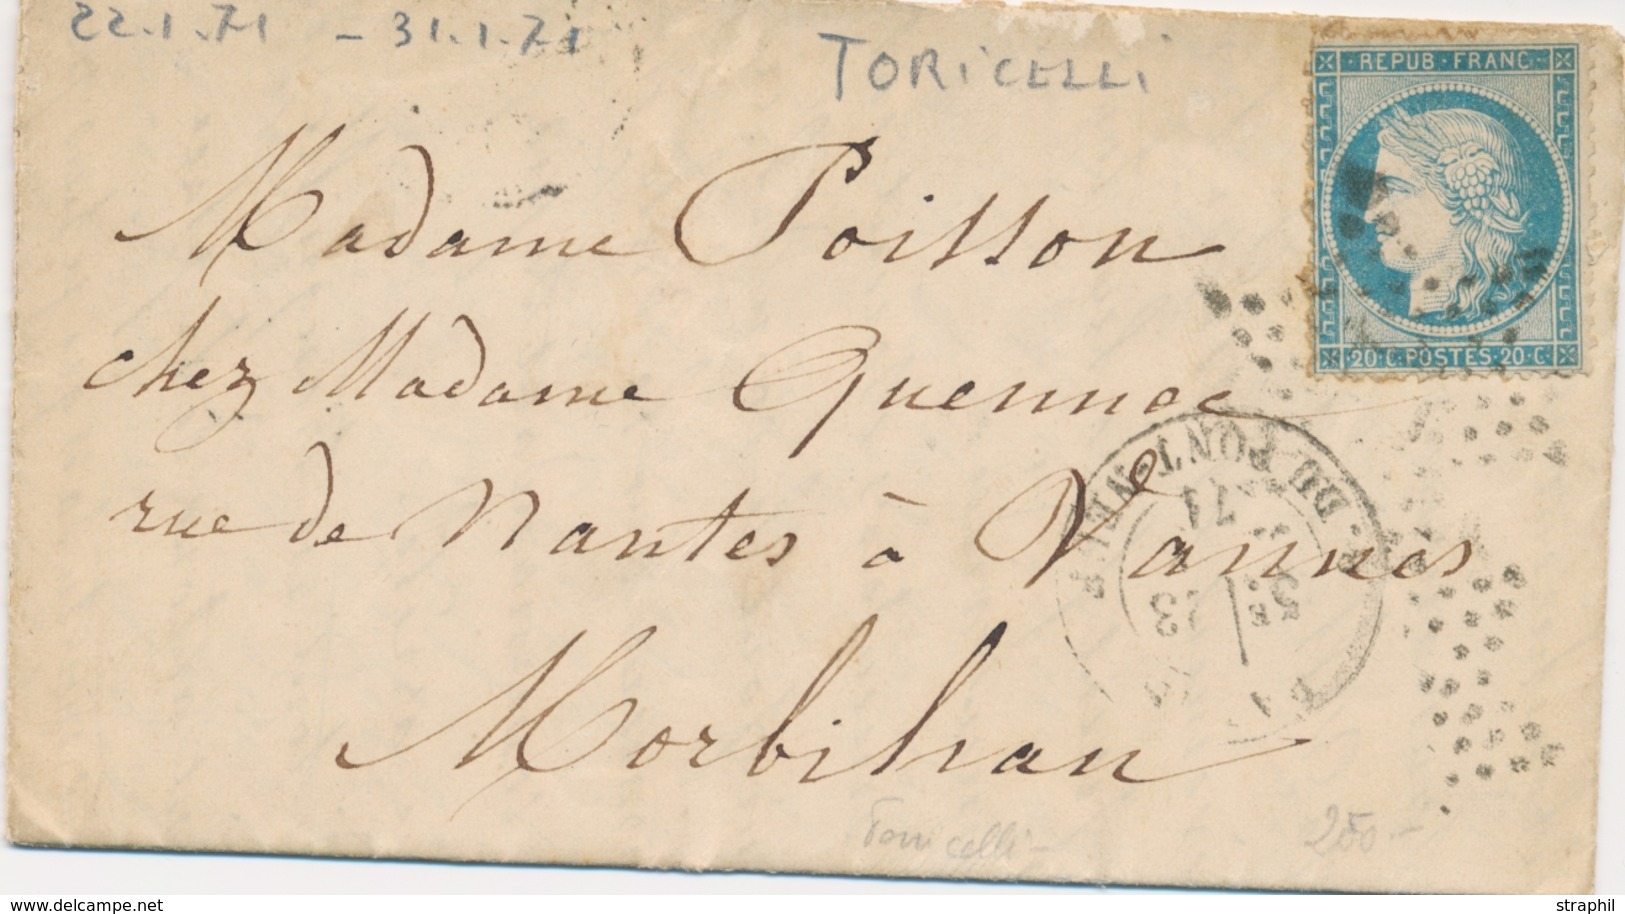 22.1.71 - 31.1.71
TORICELLI
REPUB·FRANC·
20·C·POSTES·20·C·
Madame Poisson
chez Madame Quennec
rue de Nantes à Vannes
Morbihan
DU PONT-NEUF
5E
23
71
Torricelli -
250.-
delcampe.net
straphil